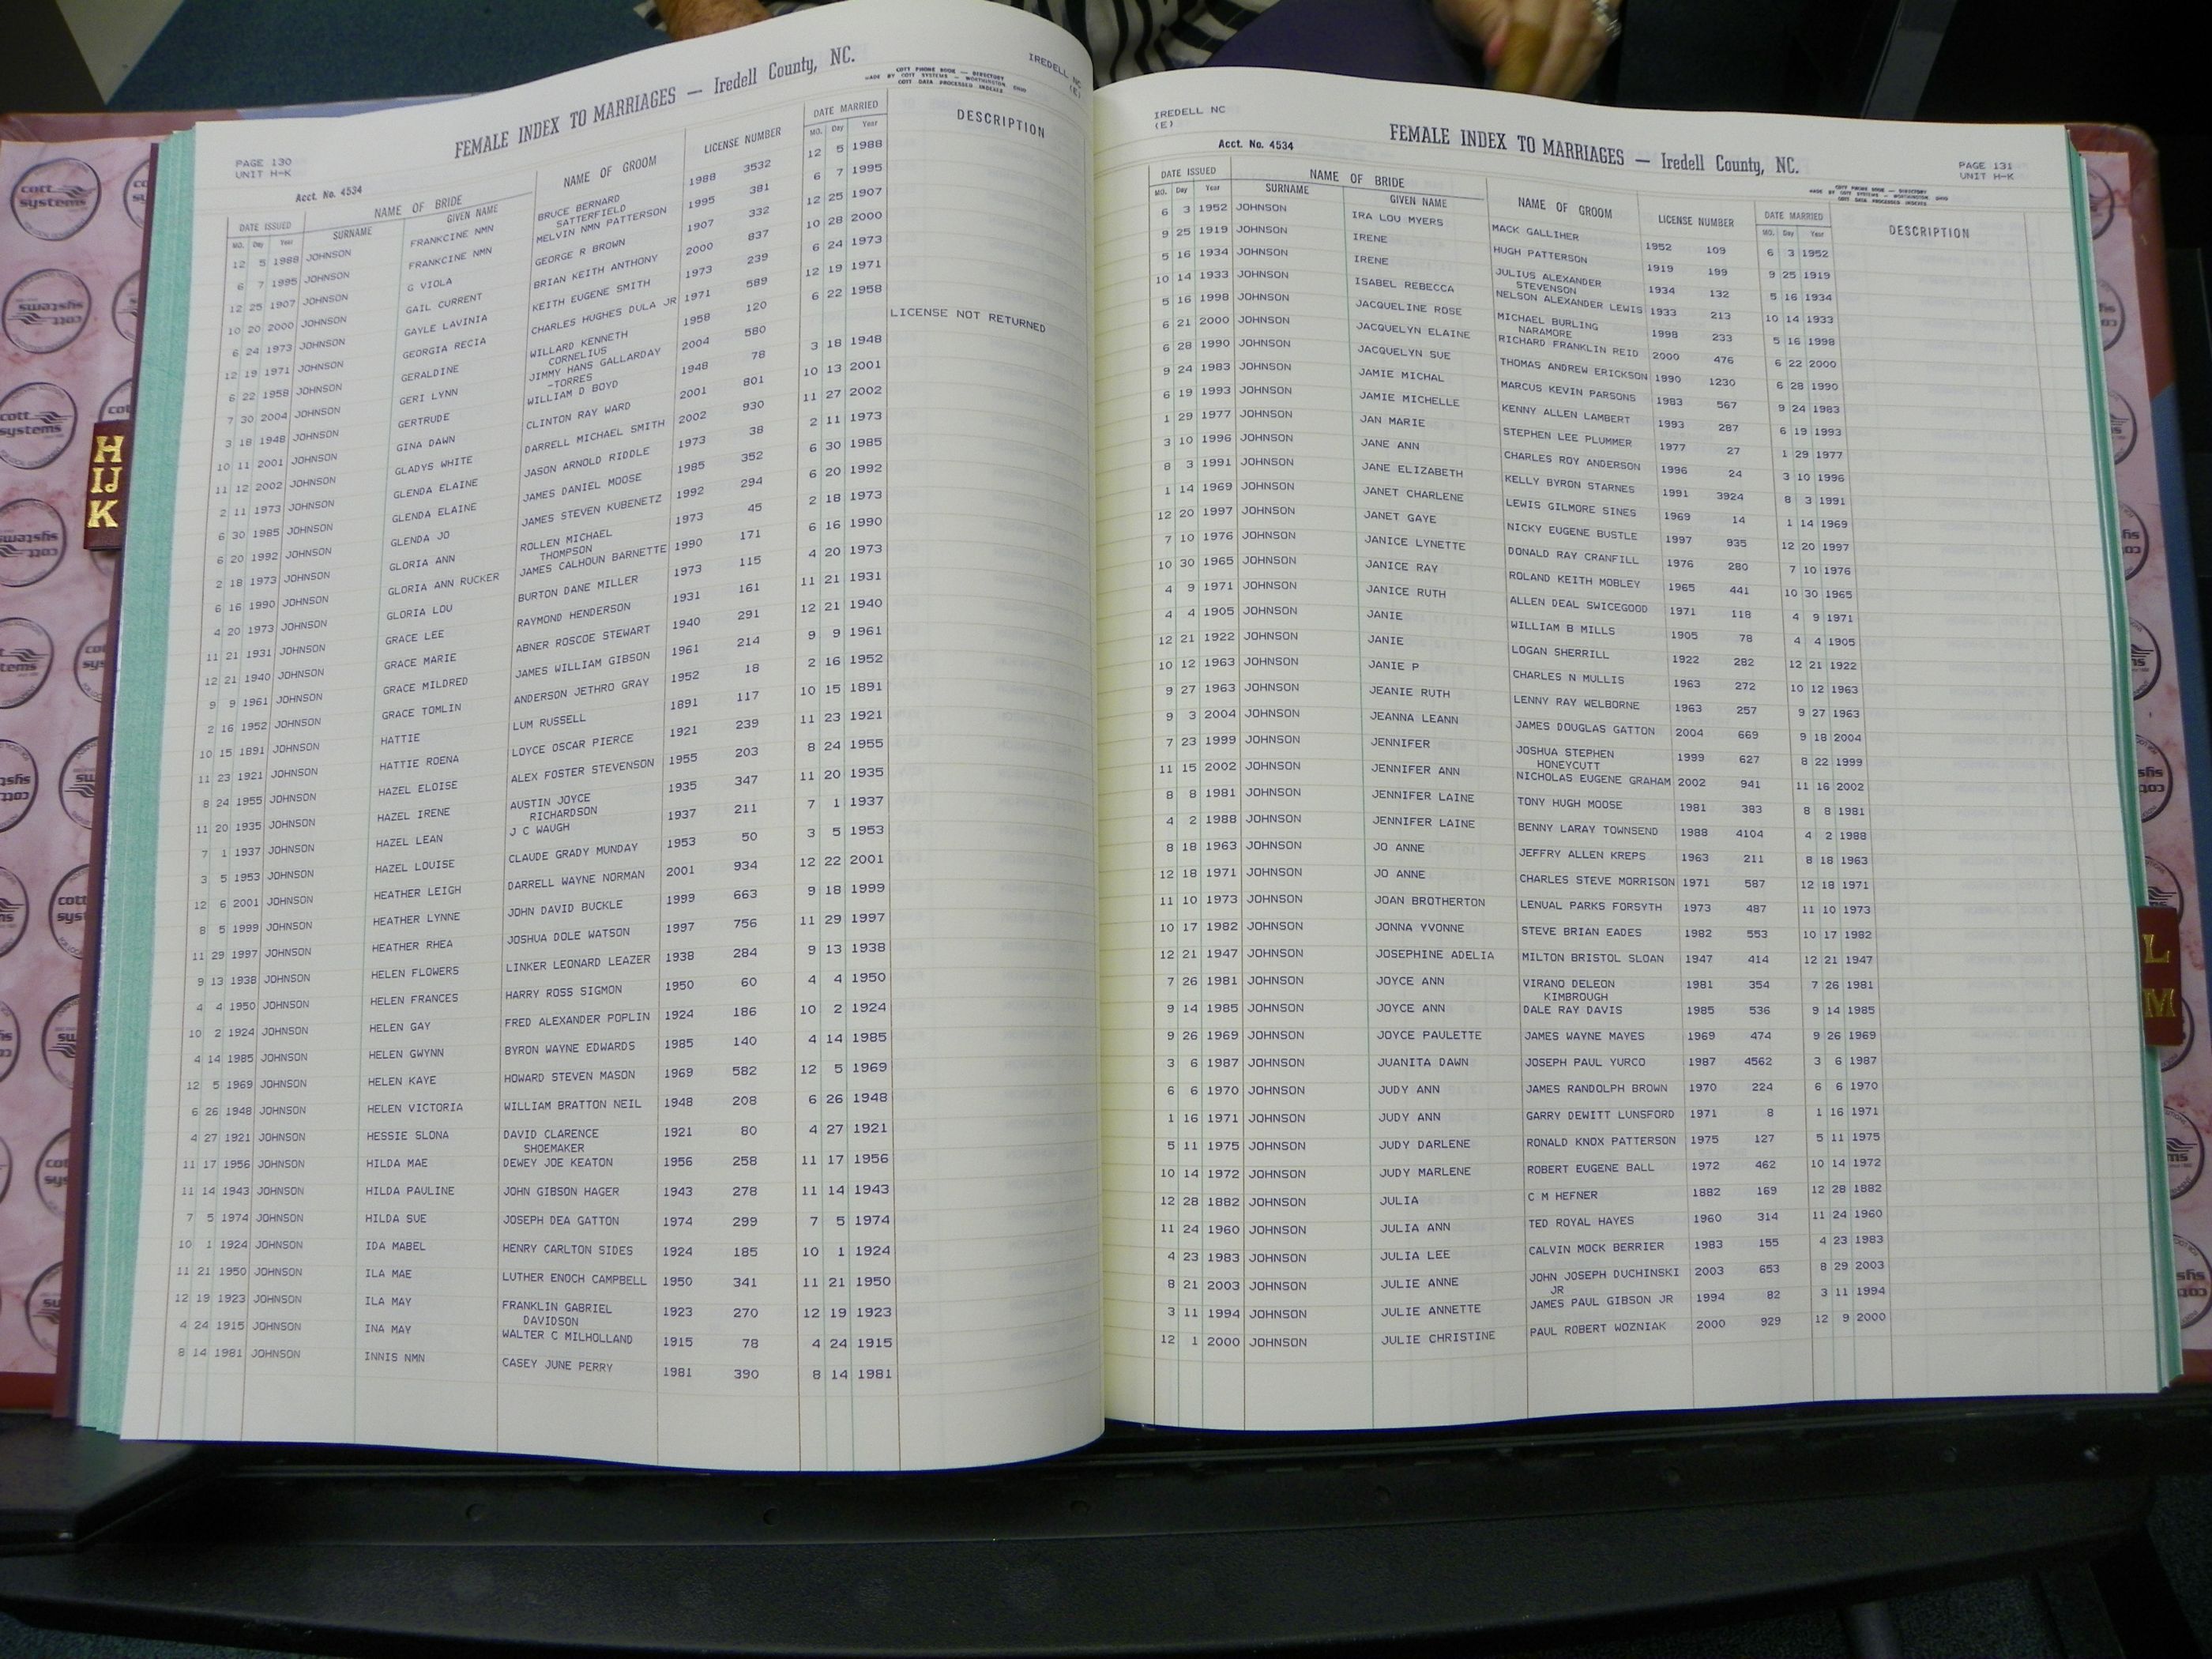 FEMALE INDEX TO MARRIAGES — Iredell County, NC.
COTT PHONE BOOK — DIRECTORY
MADE BY COTT SYSTEMS — WORTHINGTON OHIO
COTT DATA PROCESSED INDEXES
IREDELL NC
(E)
PAGE 130
UNIT H-K
Acct. No. 4534
DATE ISSUED NAME OF BRIDE NAME OF GROOM LICENSE NUMBER DATE MARRIED DESCRIPTION
MO. Day Year SURNAME GIVEN NAME MO. Day Year
12 5 1988 JOHNSON FRANKCINE NMN BRUCE BERNARD 1988 3532 12 5 1988
SATTERFIELD
6 7 1995 JOHNSON FRANKCINE NMN MELVIN NMN PATTERSON 1995 381 6 7 1995
12 25 1907 JOHNSON G VIOLA GEORGE R BROWN 1907 332 12 25 1907
10 20 2000 JOHNSON GAIL CURRENT BRIAN KEITH ANTHONY 2000 837 10 28 2000
6 24 1973 JOHNSON GAYLE LAVINIA KEITH EUGENE SMITH 1973 239 6 24 1973
12 19 1971 JOHNSON GEORGIA RECIA CHARLES HUGHES DULA JR 1971 589 12 19 1971
6 22 1958 JOHNSON GERALDINE WILLARD KENNETH 1958 120 6 22 1958
CORNELIUS
7 30 2004 JOHNSON GERI LYNN JIMMY HANS GALLARDAY 2004 580 LICENSE NOT RETURNED
-TORRES
3 18 1948 JOHNSON GERTRUDE WILLIAM D BOYD 1948 78 3 18 1948
10 11 2001 JOHNSON GINA DAWN CLINTON RAY WARD 2001 801 10 13 2001
11 12 2002 JOHNSON GLADYS WHITE DARRELL MICHAEL SMITH 2002 930 11 27 2002
2 11 1973 JOHNSON GLENDA ELAINE JASON ARNOLD RIDDLE 1973 38 2 11 1973
6 30 1985 JOHNSON GLENDA ELAINE JAMES DANIEL MOOSE 1985 352 6 30 1985
6 20 1992 JOHNSON GLENDA JO JAMES STEVEN KUBENETZ 1992 294 6 20 1992
2 18 1973 JOHNSON GLORIA ANN ROLLEN MICHAEL 1973 45 2 18 1973
THOMPSON
6 16 1990 JOHNSON GLORIA ANN RUCKER JAMES CALHOUN BARNETTE 1990 171 6 16 1990
4 20 1973 JOHNSON GLORIA LOU BURTON DANE MILLER 1973 115 4 20 1973
11 21 1931 JOHNSON GRACE LEE RAYMOND HENDERSON 1931 161 11 21 1931
12 21 1940 JOHNSON GRACE MARIE ABNER ROSCOE STEWART 1940 291 12 21 1940
9 9 1961 JOHNSON GRACE MILDRED JAMES WILLIAM GIBSON 1961 214 9 9 1961
2 16 1952 JOHNSON GRACE TOMLIN ANDERSON JETHRO GRAY 1952 18 2 16 1952
10 15 1891 JOHNSON HATTIE LUM RUSSELL 1891 117 10 15 1891
11 23 1921 JOHNSON HATTIE ROENA LOYCE OSCAR PIERCE 1921 239 11 23 1921
8 24 1955 JOHNSON HAZEL ELOISE ALEX FOSTER STEVENSON 1955 203 8 24 1955
11 20 1935 JOHNSON HAZEL IRENE AUSTIN JOYCE 1935 347 11 20 1935
RICHARDSON
7 1 1937 JOHNSON HAZEL LEAN J C WAUGH 1937 211 7 1 1937
3 5 1953 JOHNSON HAZEL LOUISE CLAUDE GRADY MUNDAY 1953 50 3 5 1953
12 6 2001 JOHNSON HEATHER LEIGH DARRELL WAYNE NORMAN 2001 934 12 22 2001
8 5 1999 JOHNSON HEATHER LYNNE JOHN DAVID BUCKLE 1999 663 9 18 1999
11 29 1997 JOHNSON HEATHER RHEA JOSHUA DOLE WATSON 1997 756 11 29 1997
9 13 1938 JOHNSON HELEN FLOWERS LINKER LEONARD LEAZER 1938 284 9 13 1938
4 4 1950 JOHNSON HELEN FRANCES HARRY ROSS SIGMON 1950 60 4 4 1950
10 2 1924 JOHNSON HELEN GAY FRED ALEXANDER POPLIN 1924 186 10 2 1924
4 14 1985 JOHNSON HELEN GWYNN BYRON WAYNE EDWARDS 1985 140 4 14 1985
12 5 1969 JOHNSON HELEN KAYE HOWARD STEVEN MASON 1969 582 12 5 1969
6 26 1948 JOHNSON HELEN VICTORIA WILLIAM BRATTON NEIL 1948 208 6 26 1948
4 27 1921 JOHNSON HESSIE SLONA DAVID CLARENCE 1921 80 4 27 1921
SHOEMAKER
11 17 1956 JOHNSON HILDA MAE DEWEY JOE KEATON 1956 258 11 17 1956
11 14 1943 JOHNSON HILDA PAULINE JOHN GIBSON HAGER 1943 278 11 14 1943
7 5 1974 JOHNSON HILDA SUE JOSEPH DEA GATTON 1974 299 7 5 1974
10 1 1924 JOHNSON IDA MABEL HENRY CARLTON SIDES 1924 185 10 1 1924
11 21 1950 JOHNSON ILA MAE LUTHER ENOCH CAMPBELL 1950 341 11 21 1950
12 19 1923 JOHNSON ILA MAY FRANKLIN GABRIEL 1923 270 12 19 1923
DAVIDSON
4 24 1915 JOHNSON INA MAY WALTER C MILHOLLAND 1915 78 4 24 1915
8 14 1981 JOHNSON INNIS NMN CASEY JUNE PERRY 1981 390 8 14 1981
IREDELL NC
(E)
Acct. No. 4534
FEMALE INDEX TO MARRIAGES — Iredell County, NC.
PAGE 131
UNIT H-K
COTT PHONE BOOK — DIRECTORY
MADE BY COTT SYSTEMS — WORTHINGTON OHIO
COTT DATA PROCESSED INDEXES
DATE ISSUED NAME OF BRIDE NAME OF GROOM LICENSE NUMBER DATE MARRIED DESCRIPTION
MO. Day Year SURNAME GIVEN NAME MO. Day Year
6 3 1952 JOHNSON IRA LOU MYERS MACK GALLIHER 1952 109 6 3 1952
9 25 1919 JOHNSON IRENE HUGH PATTERSON 1919 199 9 25 1919
5 16 1934 JOHNSON IRENE JULIUS ALEXANDER 1934 132 5 16 1934
STEVENSON
10 14 1933 JOHNSON ISABEL REBECCA NELSON ALEXANDER LEWIS 1933 213 10 14 1933
5 16 1998 JOHNSON JACQUELINE ROSE MICHAEL BURLING 1998 233 5 16 1998
NARAMORE
6 21 2000 JOHNSON JACQUELYN ELAINE RICHARD FRANKLIN REID 2000 476 6 22 2000
6 28 1990 JOHNSON JACQUELYN SUE THOMAS ANDREW ERICKSON 1990 1230 6 28 1990
9 24 1983 JOHNSON JAMIE MICHAL MARCUS KEVIN PARSONS 1983 567 9 24 1983
6 19 1993 JOHNSON JAMIE MICHELLE KENNY ALLEN LAMBERT 1993 287 6 19 1993
1 29 1977 JOHNSON JAN MARIE STEPHEN LEE PLUMMER 1977 27 1 29 1977
3 10 1996 JOHNSON JANE ANN CHARLES ROY ANDERSON 1996 24 3 10 1996
8 3 1991 JOHNSON JANE ELIZABETH KELLY BYRON STARNES 1991 3924 8 3 1991
1 14 1969 JOHNSON JANET CHARLENE LEWIS GILMORE SINES 1969 14 1 14 1969
12 20 1997 JOHNSON JANET GAYE NICKY EUGENE BUSTLE 1997 935 12 20 1997
7 10 1976 JOHNSON JANICE LYNETTE DONALD RAY CRANFILL 1976 280 7 10 1976
10 30 1965 JOHNSON JANICE RAY ROLAND KEITH MOBLEY 1965 441 10 30 1965
4 9 1971 JOHNSON JANICE RUTH ALLEN DEAL SWICEGOOD 1971 118 4 9 1971
4 4 1905 JOHNSON JANIE WILLIAM B MILLS 1905 78 4 4 1905
12 21 1922 JOHNSON JANIE LOGAN SHERRILL 1922 282 12 21 1922
10 12 1963 JOHNSON JANIE P CHARLES N MULLIS 1963 272 10 12 1963
9 27 1963 JOHNSON JEANIE RUTH LENNY RAY WELBORNE 1963 257 9 27 1963
9 3 2004 JOHNSON JEANNA LEANN JAMES DOUGLAS GATTON 2004 669 9 18 2004
7 23 1999 JOHNSON JENNIFER JOSHUA STEPHEN 1999 627 8 22 1999
HONEYCUTT
11 15 2002 JOHNSON JENNIFER ANN NICHOLAS EUGENE GRAHAM 2002 941 11 16 2002
8 8 1981 JOHNSON JENNIFER LAINE TONY HUGH MOOSE 1981 383 8 8 1981
4 2 1988 JOHNSON JENNIFER LAINE BENNY LARAY TOWNSEND 1988 4104 4 2 1988
8 18 1963 JOHNSON JO ANNE JEFFRY ALLEN KREPS 1963 211 8 18 1963
12 18 1971 JOHNSON JO ANNE CHARLES STEVE MORRISON 1971 587 12 18 1971
11 10 1973 JOHNSON JOAN BROTHERTON LENUAL PARKS FORSYTH 1973 487 11 10 1973
10 17 1982 JOHNSON JONNA YVONNE STEVE BRIAN EADES 1982 553 10 17 1982
12 21 1947 JOHNSON JOSEPHINE ADELIA MILTON BRISTOL SLOAN 1947 414 12 21 1947
7 26 1981 JOHNSON JOYCE ANN VIRANO DELEON 1981 354 7 26 1981
KIMBROUGH
9 14 1985 JOHNSON JOYCE ANN DALE RAY DAVIS 1985 536 9 14 1985
9 26 1969 JOHNSON JOYCE PAULETTE JAMES WAYNE MAYES 1969 474 9 26 1969
3 6 1987 JOHNSON JUANITA DAWN JOSEPH PAUL YURCO 1987 4562 3 6 1987
6 6 1970 JOHNSON JUDY ANN JAMES RANDOLPH BROWN 1970 224 6 6 1970
1 16 1971 JOHNSON JUDY ANN GARRY DEWITT LUNSFORD 1971 8 1 16 1971
5 11 1975 JOHNSON JUDY DARLENE RONALD KNOX PATTERSON 1975 127 5 11 1975
10 14 1972 JOHNSON JUDY MARLENE ROBERT EUGENE BALL 1972 462 10 14 1972
12 28 1882 JOHNSON JULIA C M HEFNER 1882 169 12 28 1882
11 24 1960 JOHNSON JULIA ANN TED ROYAL HAYES 1960 314 11 24 1960
4 23 1983 JOHNSON JULIA LEE CALVIN MOCK BERRIER 1983 155 4 23 1983
8 21 2003 JOHNSON JULIE ANNE JOHN JOSEPH DUCHINSKI 2003 653 8 29 2003
JR
3 11 1994 JOHNSON JULIE ANNETTE JAMES PAUL GIBSON JR 1994 82 3 11 1994
12 1 2000 JOHNSON JULIE CHRISTINE PAUL ROBERT WOZNIAK 2000 929 12 9 2000
H
IJ
K
L
M
cott
systems